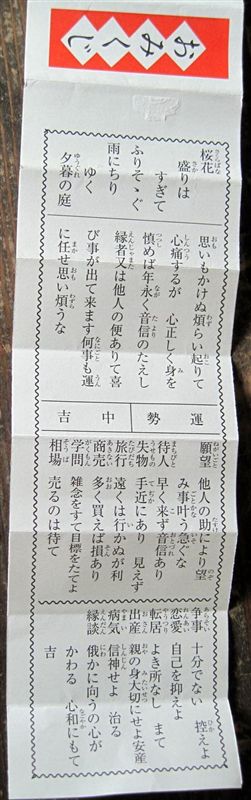 おみくじ
桜花
盛りは
すぎて
ふりそゝぐ
雨にちり
ゆく
夕暮の庭
思いもかけぬ煩らい起りて
心痛するが 心正しく身を
慎めば年永く音信のたえし
縁者又は他人の便ありて喜
び事が出て来ます何事も運
に任せ思い煩うな
運勢 中吉
願望 他人の助により望
み事叶う急ぐな
待人 早く来ず音信あり
失物 手近にあり 見えず
旅行 遠くは行かぬが利
商売 多く買えば損あり
学問 雑念をすて目標をたてよ
相場 売るのは待て
争事 十分でない 控えよ
恋愛 自己を抑えよ
転居 よき所なし まて
出産 親の身大切にせよ安産
病気 信神せよ 治る
縁談 俄かに向うの心が
かわる 心和にもて
吉